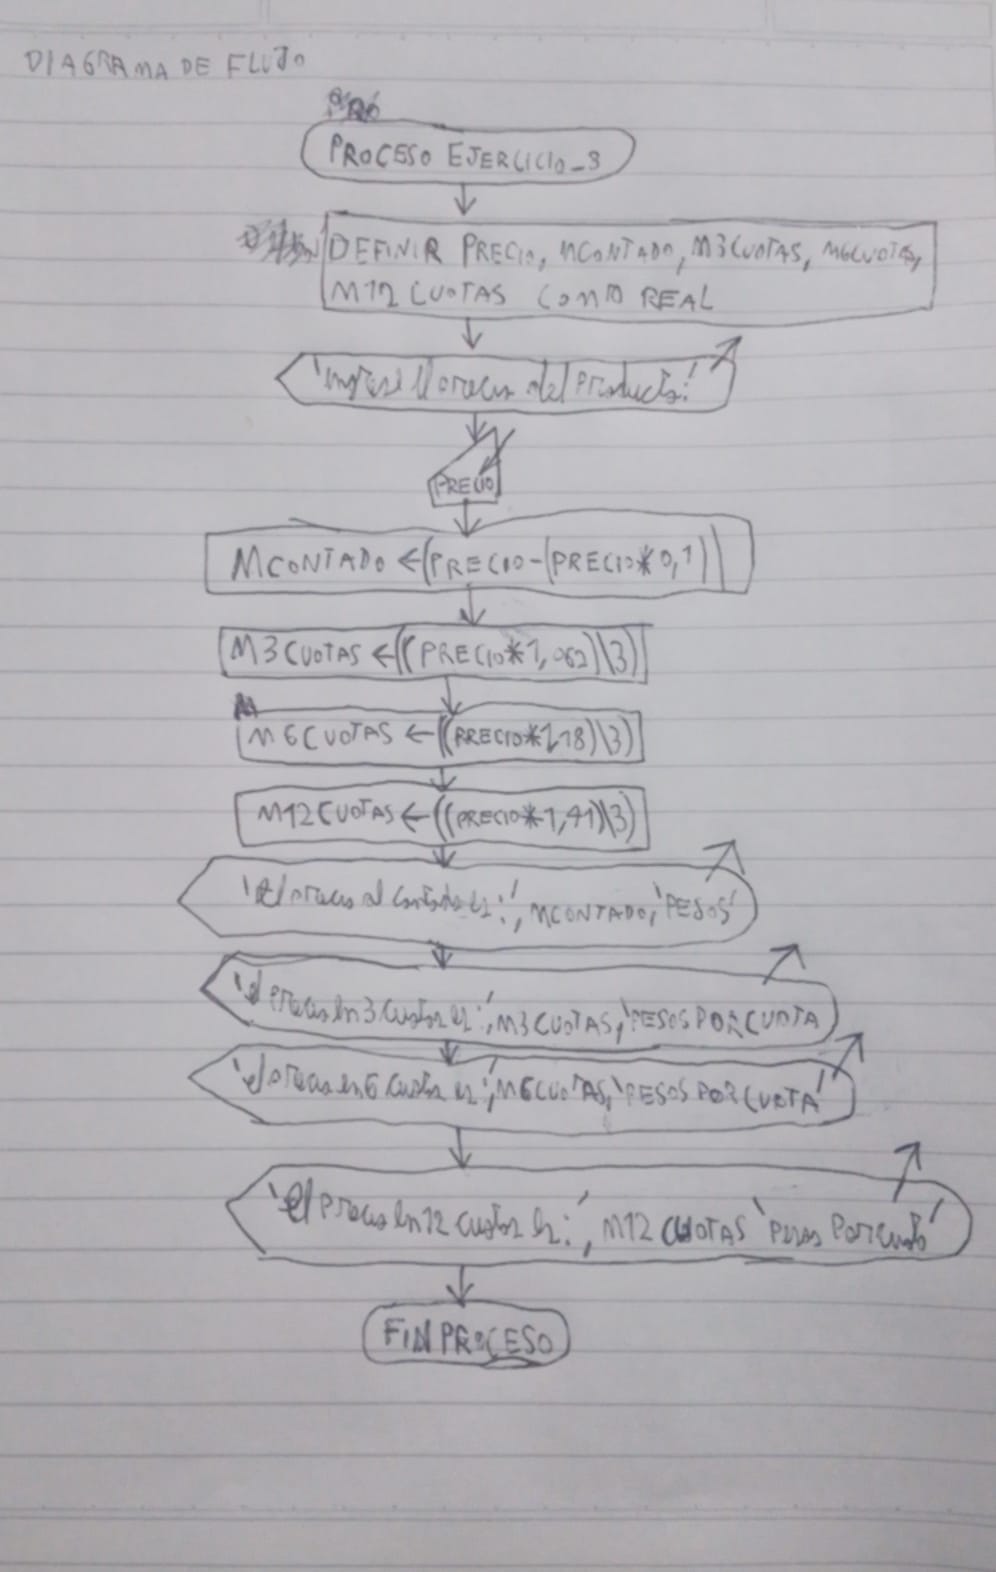 DIAGRAMA DE FLUJO
PROCESO EJERCICIO_3
DEFINIR PRECIO, MCONTADO, M3CUOTAS, M6CUOTAS,
M12CUOTAS COMO REAL
'Ingrese el precio del producto:'
PRECIO
MCONTADO ←(PRECIO-(PRECIO*0,1))
M3CUOTAS ←((PRECIO*1,062)\3)
M6CUOTAS ←((PRECIO*1,18)\3)
M12CUOTAS ←((PRECIO*1,41)\3)
'El precio al contado es:', MCONTADO, 'PESOS'
'el precio en 3 cuotas es:', M3CUOTAS, 'PESOS POR CUOTA
'el precio en 6 cuotas es:', M6CUOTAS, 'PESOS POR CUOTA'
'El precio en 12 cuotas es:', M12 CUOTAS 'pesos por cuota'
FIN PROCESO